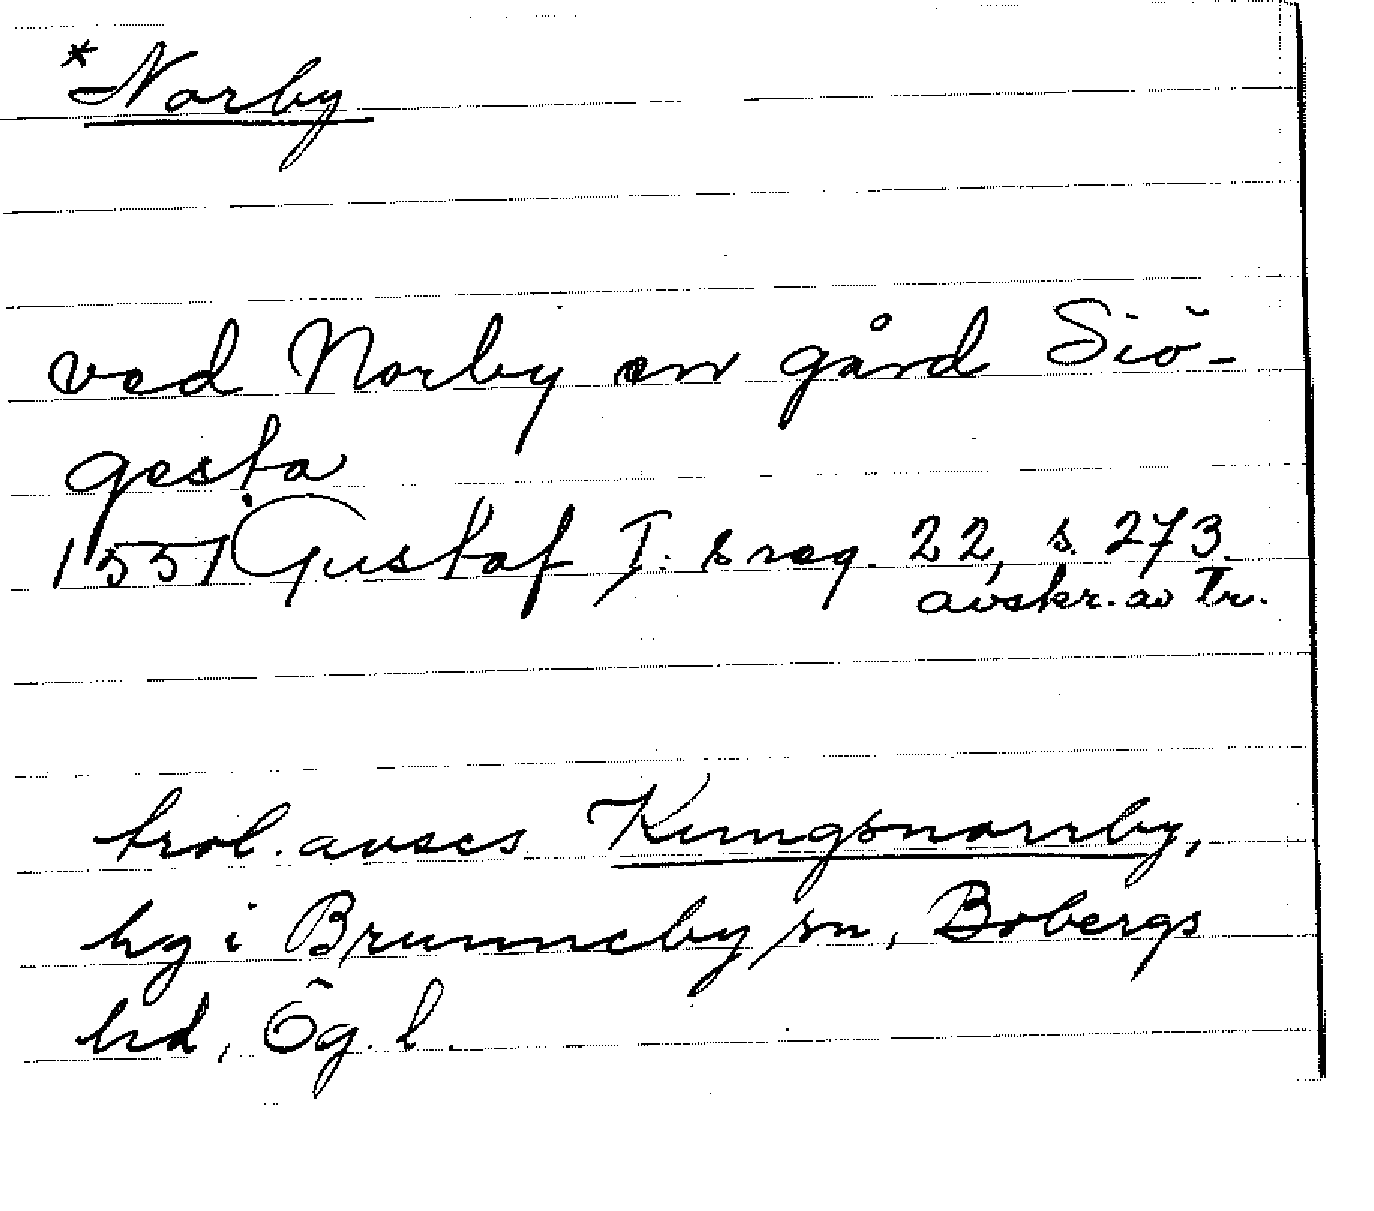 *Norby
ved Norby en gård Siö-
gesta
1551 Gustaf I:s reg. 22, s. 273.
avskr. av Tr.
trol. avses Kungsnorrby,
hg i Brunneby sn, Bobergs
hd, Ög. l.